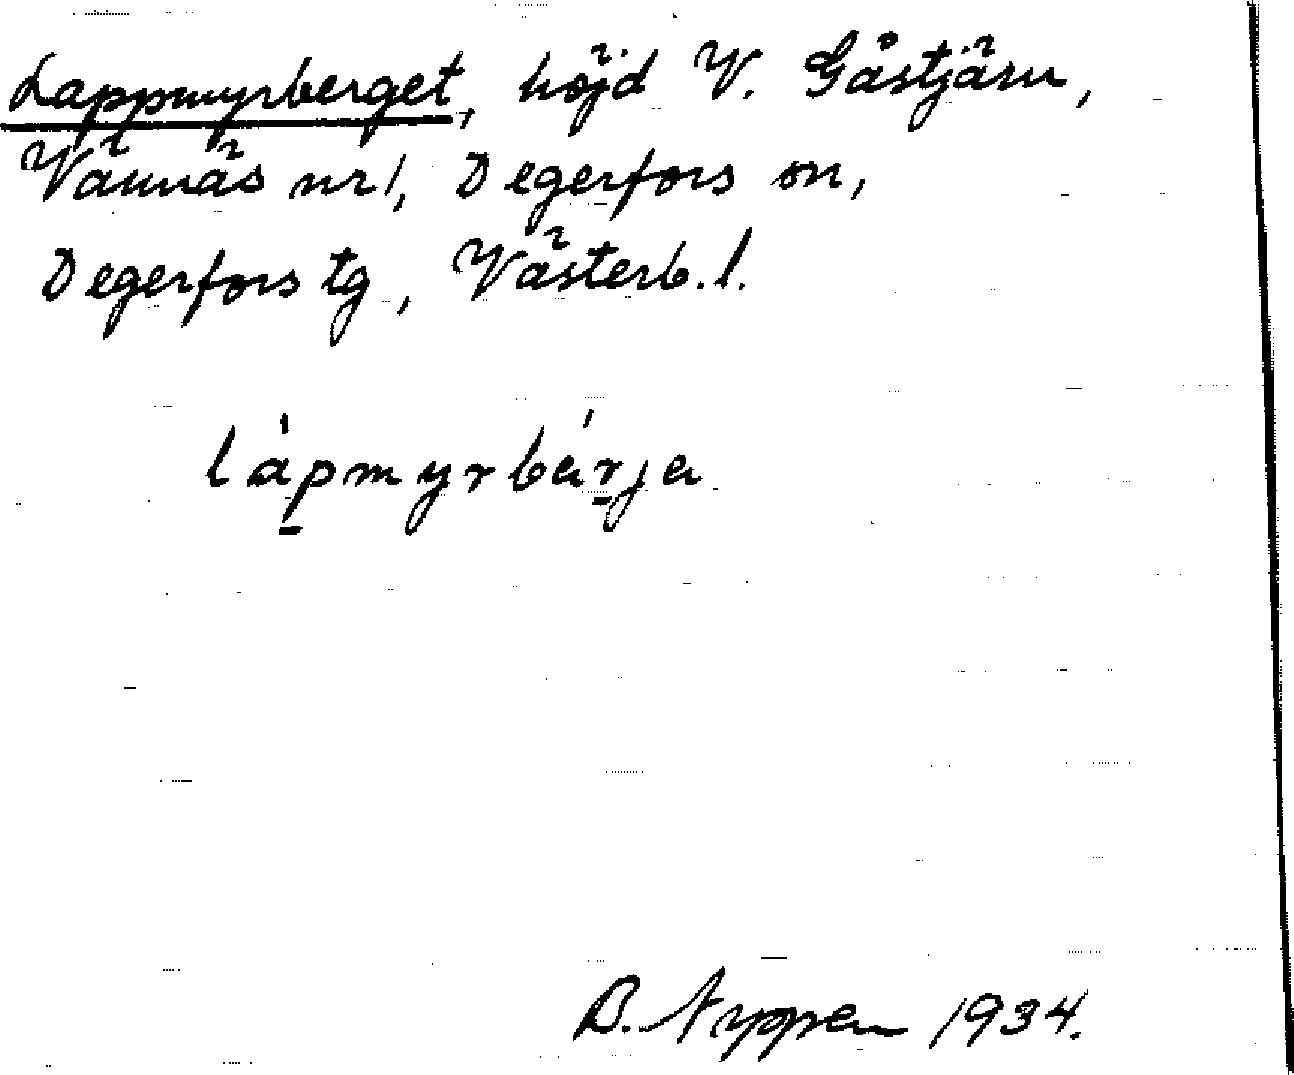 Lappmyrberget, höjd V. Gåstjärn,
Vännäs nr 1, Degerfors sn,
Degerfors tg, Västerb. l.
làpmyrbárja
B. Nyppen 1934.